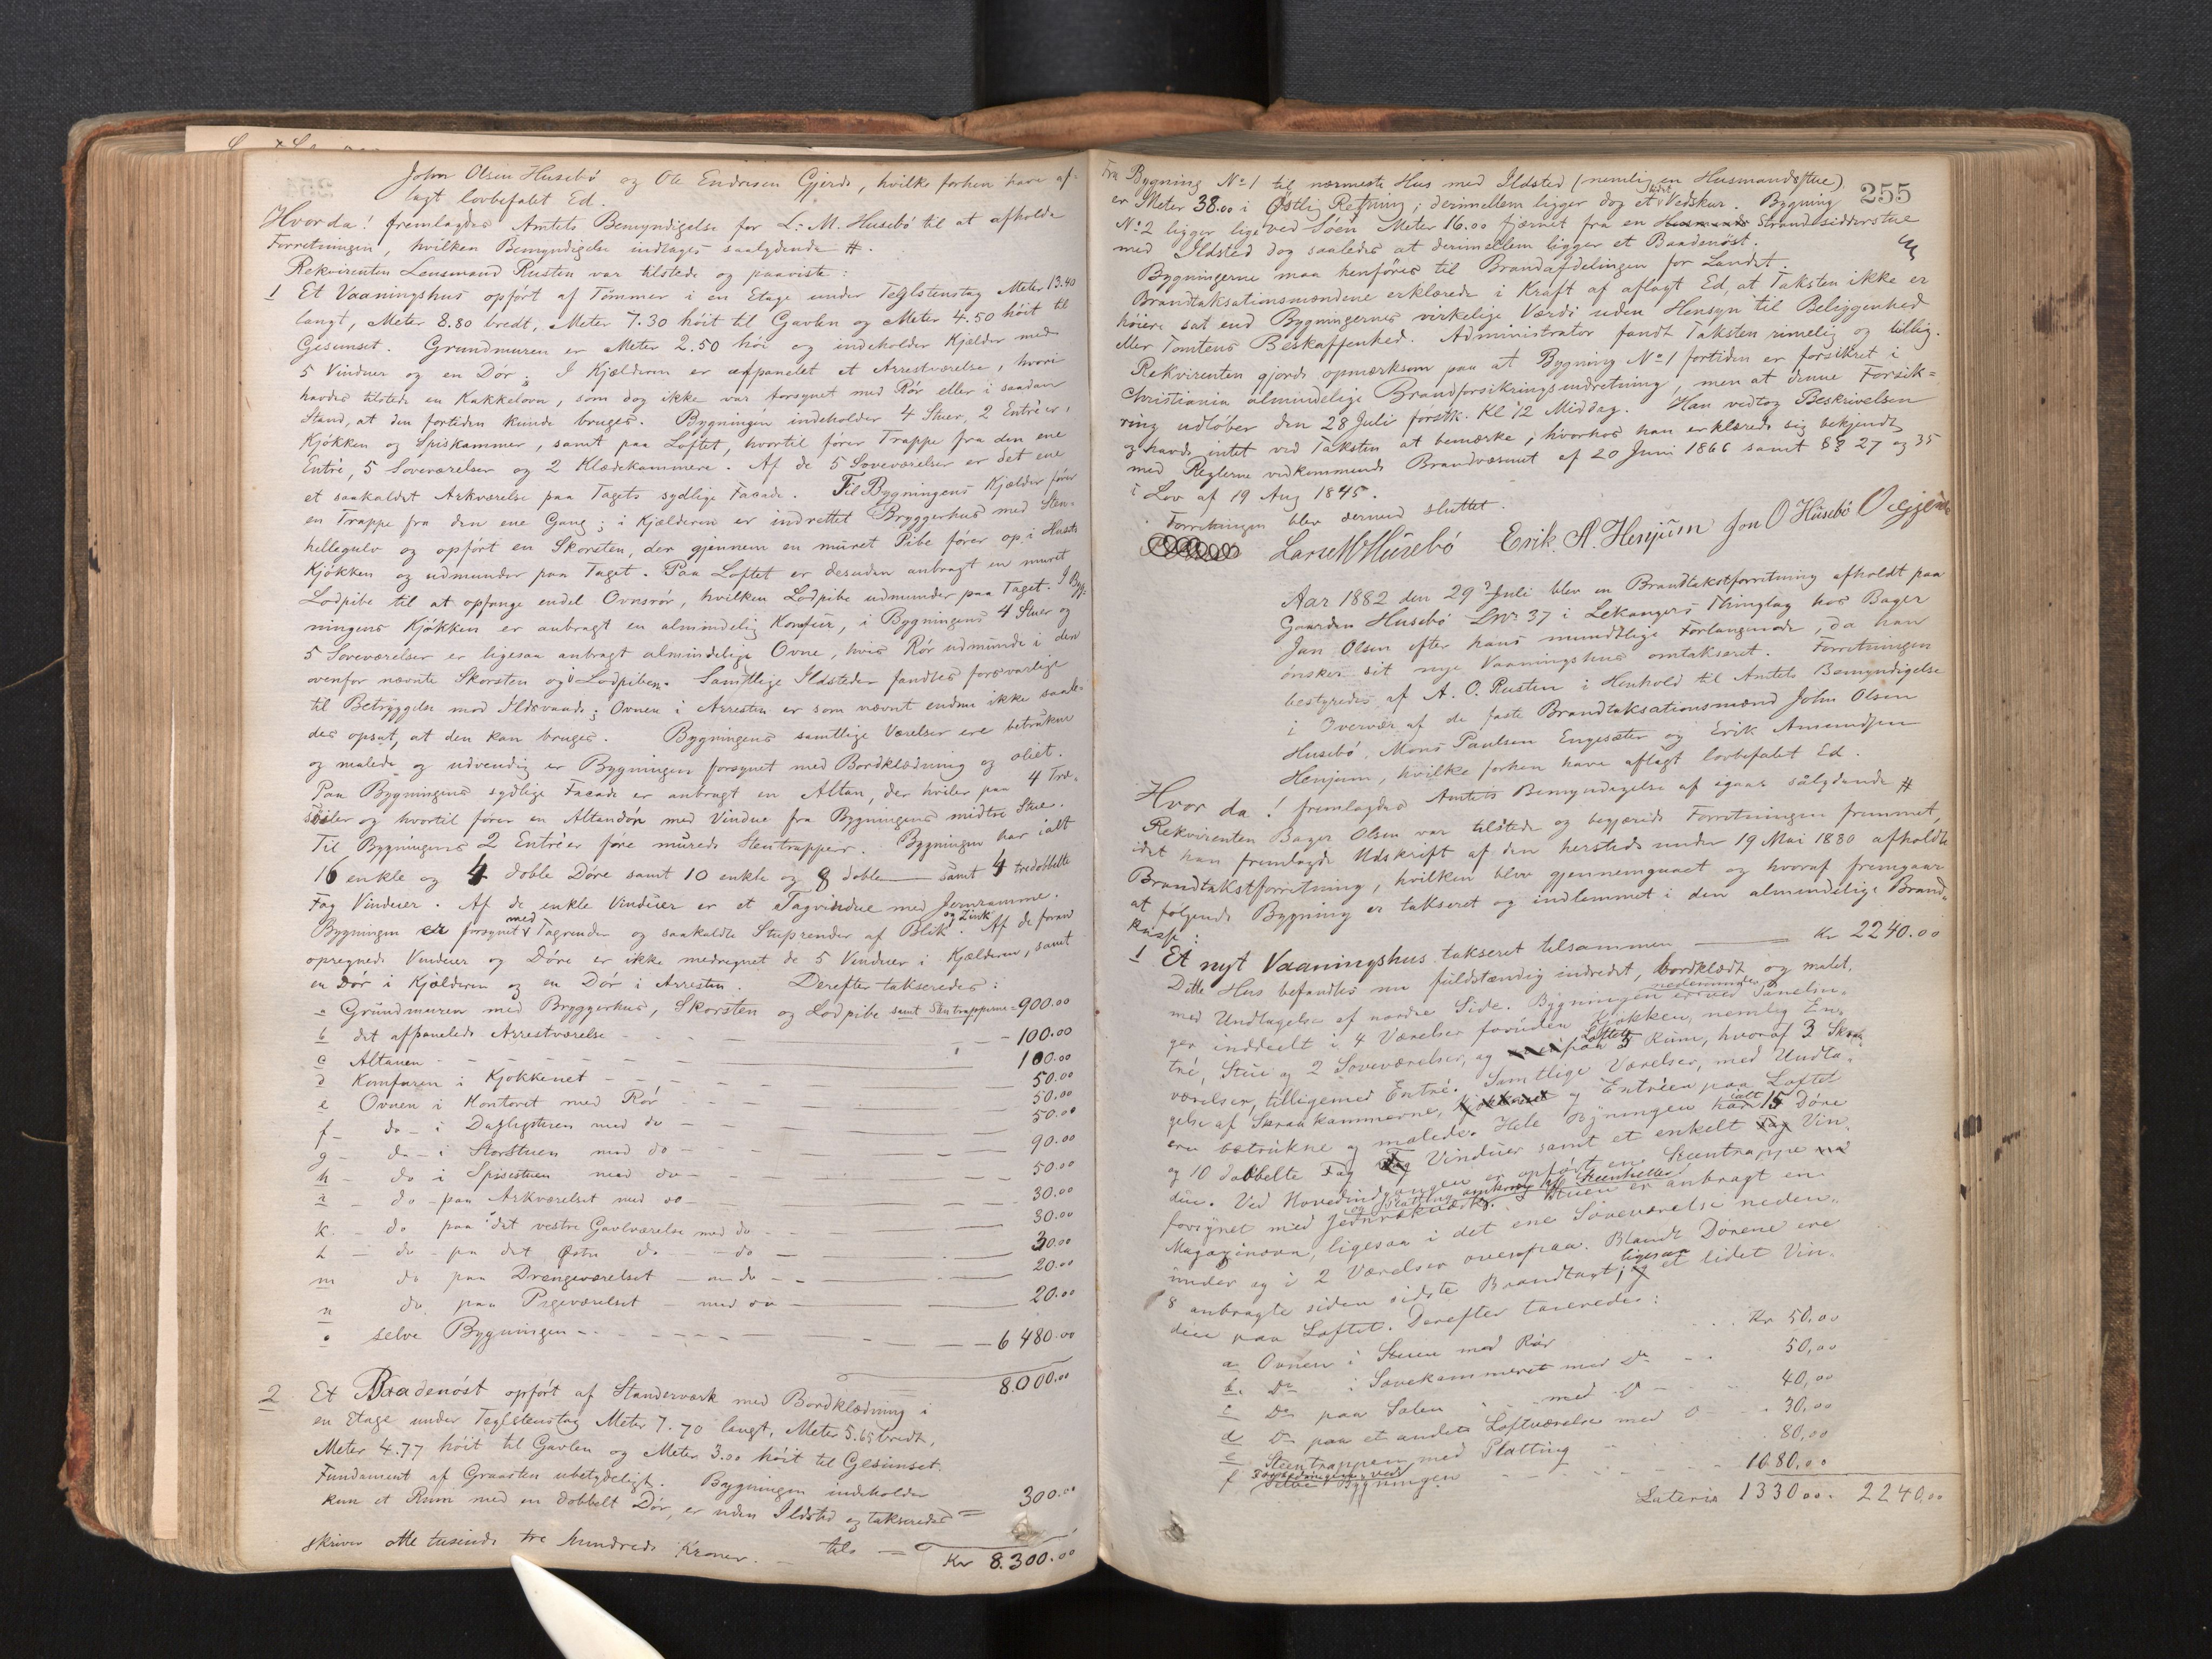 John Olsen Husebö og Ole Endresen Gjerde, hvilke forhen have af-
lagt lovbefalet Ed.
Hvor da! fremlagdes Amtets Bemyndigelse for L. M. Husebö til at afholde
Forretningen, hvilken Bemyndigelse indtages saalydende #.
Rekvirenten Lensmand Rusten var tilstede og paaviste:
1 Et Vaaningshus opfört af Tömmer i en Etage under Teglstenstag Meter 13.40
langt, Meter 8.80 bredt, Meter 7.30 höit til Gavlen og Meter 4.50 höit til
Gesimset. Grundmuren er Meter 2.50 höi og indeholder Kjælder med
5 Vinduer og en Dör; I Kjælderen er afpanelet et Arrestværelse, hvori
havdes tilstede en Kakkelovn, som dog ikke var forsynet med Rör eller i saadan
Stand, at den fortiden kunde bruges. Bygningen indeholder 4 Stuer, 2 Entréer,
Kjökken og Spiskammer, samt paa Loftet, hvortil förer Trappe fra den ene
Entré, 5 Soveværelser og 2 Klædekammere. Af de 5 Soveværelser er det ene
et saakaldet Arkværelse paa Tagets sydlige Facade. Til Bygningens Kjælder förer
en Trappe fra den ene Gang; i Kjælderen er indrettet Bryggerhus med Sten-
hellegulv og opfört en Skorsten, der gjennem en muret Pibe förer op i Husets
Kjökken og udmunder paa Taget. Paa Loftet er desuden anbragt en muret
Lodpibe til at opfange endel Ovnsrör, hvilken Lodpibe udmunder paa Taget. I Byg-
ningens Kjökken er anbragt en almindelig Komfur, i Bygningens 4 Stuer og
5 Soveværelser er ligesaa anbragt almindelige Ovne, hvis Rör udmunde i den
ovenfor nævnte Skorsten og i Lodpiben. Samtlige Ildsteder fandtes forsvarlige
til Betryggelse mod Ildsvaade; Ovnen i Arresten er som nævnt endnu ikke saale-
des opsat, at den kan bruges. Bygningens samtlige Værelser ere betrukne
og malede og udvendig er Bygningen forsynet med Bordklædning og oliet.
Paa Bygningens sydlige Facade er anbragt en Altan, der hviler paa 4 Træ-
söiler og hvortil förer en Altandör med Vindue fra Bygningens midtre Stue.
Til Bygningens 2 Entréer före murede Stentrapper. Bygningen har ialt
16 enkle og 4 doble Döre samt 10 enkle og 8 doble samt 4 tredobbelte
Fag Vinduer. Af de enkle Vinduer er et Tagvindue med Jernramme.
Bygningen er forsynet med Tagrender og saakaldte Stuprender af Blik og Zink. Af de foran
opregnede Vinduer og Döre er ikke medregnet de 5 Vinduer i Kjælderen, samt
en Dör i Kjælderen og en Dör i Arresten. Derefter takseredes:
a Grundmuren med Bryggerhus, Skorsten og Lodpibe samt Stentrapperne 900.00
b det afpanelede Arrestværelse 100.00
c Altanen 100.00
d Komfuren i Kjökkenet 50.00
e Ovnen i Kontoret med Rör 50.00
f do i Dagligstuen med do 50.00
g do i Storstuen med do 90.00
h do i Spisestuen med do 50.00
i do paa Arkværelset med do 30.00
k do paa det vestre Gavlværelse med do 30.00
l do paa det Østre do do 30.00
m do paa Drengeværelset m do 20.00
n do paa Pigeværelset med do 20.00
o selve Bygningen 6480.00
8.000.00
2 Et Baadenöst opfört af Standerværk med Bordklædning i
en Etage under Teglstenstag Meter 7.70 langt, Meter 5.65 bredt,
Meter 4.77 höit til Gavlen og Meter 3.00 höit til Gesimset.
Fundament af Graasten ubetydeligt. Bygningen indeholder
kun et Rum med en dobbelt Dör, er uden Ildsted og takseredes 300.00
skriver otte tusinde tre hundrede Kroner. tils Kr 8.300.00
255
Fra Bygning No 1 til nærmeste Hus med Ildsted (nemlig en Husmandsstue)
er Meter 38.00 i Østlig Retning; derimellem ligger dog et lidet Vedskur. Bygning
No 2 ligger lige ved Söen Meter 16.00 fjærnet fra en Strandsidderstue
med Ildsted dog saaledes at derimellem ligger et Baadenöst.
Bygningerne maa henföres til Brandafdelingen for Landet.
Brandtaksationsmændene erklærede i Kraft af aflagt Ed, at Taksten ikke er
höiere sat end Bygningernes virkelige Værdi uden Hensyn til Beliggenhed
eller Tomtens Beskaffenhed. Administrator fandt Taksten rimelig og billig.
Rekvirenten gjorde opmærksom paa at Bygning No 1 fortiden er forsikret i
Christiania almindelige Brandforsikringsindretning, men at denne Forsik=
ring udlöber den 28 Juli förstk. Kl 12 Middag. Han vedtog Beskrivelsen
og havde intet ved Taksten at bemærke, hvorhos han erklærede sig bekjendt
med Reglerne vedkommende Brandvæsenet af 20 Juni 1866 samt §§ 27 og 35
i Lov af 19 Aug 1845.
Forretningen blev dermed sluttet.
Lars M Husebö Erik. A. Henjum Jon O Husebö O e gjerde
Aar 1882 den 29 Juli blev en Brandtakstforretning afholdt paa
Gaarden Husebö Lnr 37 i Lekangers Thinglag hos Bager
Jan Olsen efter hans mundtlige Forlangende, da han
önsker sit nye Vaaningshus omtakseret. Forretningen
bestyredes af A. O. Rusten i Henhold til Amtets Bemyndigelse
i Overvær af de faste Brandtaksationsmænd John Olsen
Husebö, Mons Paulsen Engesæter og Erik Amundsen
Henjum, hvilke forhen have aflagt lovbefalet Ed.
Hvor da! fremlagdes Amtets Bemyndigelse af igaar sålydende #
Rekvirenten Bager Olsen var tilstede og begjærede Forretningen fremmet,
idet han fremlagde Udskrift af den hersteds under 19 Mai 1880 afholdte
Brandtakstforretning, hvilken blev gjennemgaaet og hvoraf fremgaar
at fölgende Bygning er takseret og indlemmet i den almindelige Brand-
kasse:
1 Et nyt Vaaningshus takseret tilsammen Kr 2240.00
Dette Hus befandtes nu fuldstændig indredet, bordklædt og malet,
med Undtagelse af nordre Side. Bygningen er nedenunder ved Panelin-
ger inddeelt i 4 Værelser foruden Kjøkken, nemlig En-
tré, Stue og 2 Soveværelser, og paa Loftet 5 Rum, hvoraf 3 Skraa-
værelser, tilligemed Entré. Samtlige Værelser, med Undta-
gelse af Skraakammerne, og Entréen paa Loftet
ere betrukne og malede. Hele Bygningen har ialt 15 Döre
og 10 dobbelte Fag Vinduer samt et enkelt Vin-
due. Ved Hovedindgangen er opfört en Steentrappe
og Platting omkring af Steenheller
forsynet med Jernrækværk. I Stuen er anbragt en
Magazinovn, ligesaa i det ene Soveværelse neden-
under og i 2 Værelser ovenpaa. Blandt Dörene ere
8 anbragte siden sidste Brandtaxt; ligesaa et lidet Vin-
due paa Loftet. Derefter taxeredes:
a Ovnen i Stuen med Rör Kr 50,00
b. Do i Sovekammeret med Do 50,00
c Do paa Salen med Do 40,00
d Do paa et andet Loftværelse med Do 30,00
e Steentrappen med Platting 80,00
f Bygningen 1080,00
Lateris 1330.00. 2240,00